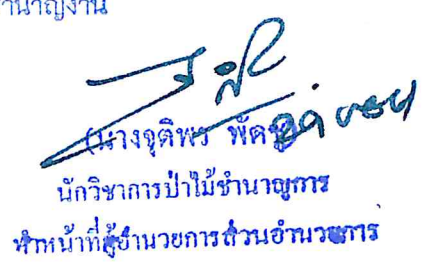 ชำนาญงาน
(นางจุติพร
นักวิชาการป่าไม้ชำนาญการ
ทำหน้าที่ผู้อำนวยการส่วนอำนวยการ